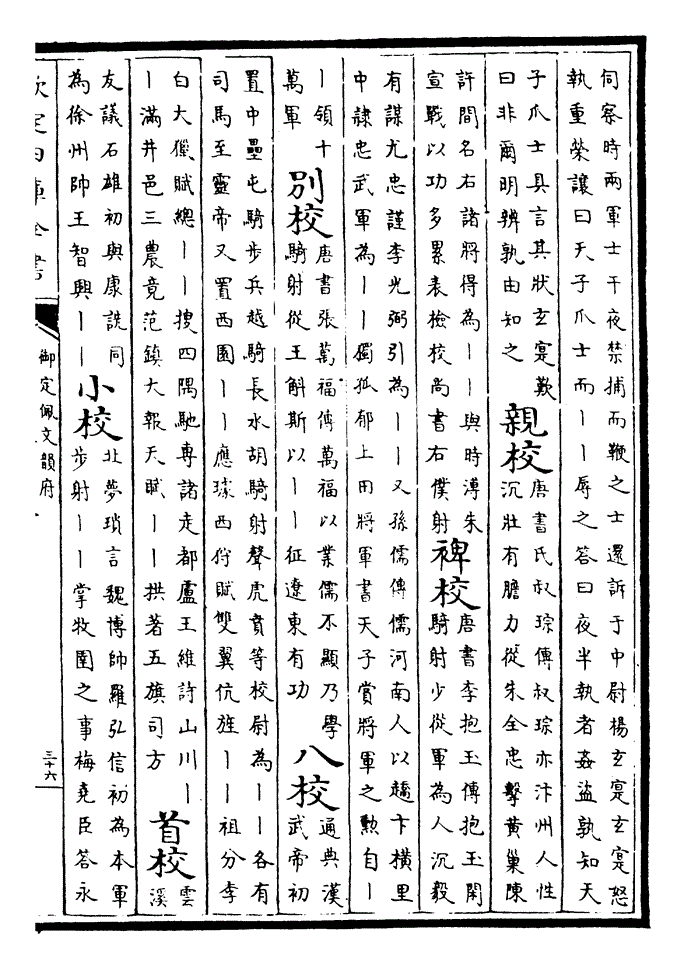 伺察時兩軍士干夜禁捕而鞭之士還訴于中尉楊玄寔玄寔怒
執重榮讓曰天子爪士而丨丨辱之答曰夜半執者姦盜孰知天
子爪士具言其狀玄寔歎
曰非爾明辨孰由知之
親校
唐書氏叔琮傳叔琮亦汴州人性
沉壯有膽力從朱全忠擊黃巢陳
許間名右諸將得為丨丨與時溥朱
宣戰以功多累表檢校尚書右僕射
裨校
唐書李抱玉傳抱玉閑
騎射少從軍為人沉毅
有謀尤忠謹李光弼引為丨丨又孫儒傳儒河南人以趫卞橫里
中隸忠武軍為丨丨獨孤郁上田將軍書天子賞將軍之勲自丨
丨領十
萬軍
別校
唐書張萬福傳萬福以業儒不顯乃學
騎射從王斛斯以丨丨征遼東有功
八校
通典漢
武帝初
置中壘屯騎步兵越騎長水胡騎射聲虎賁等校尉為丨丨各有
司馬至靈帝又置西園丨丨應瑒西狩賦雙翼伉旌丨丨祖分李
白大獵賦總丨丨搜四隅馳專諸走都盧王維詩山川丨
丨滿井邑三農竟范鎮大報天賦丨丨拱著五旗司方
首校
雲
溪
友議石雄初與康詵同
為徐州帥王智興丨丨
小校
北夢瑣言魏博帥羅弘信初為本軍
步射丨丨掌牧圉之事梅堯臣答永
欽定四庫全書
御定佩文韻府
三十六